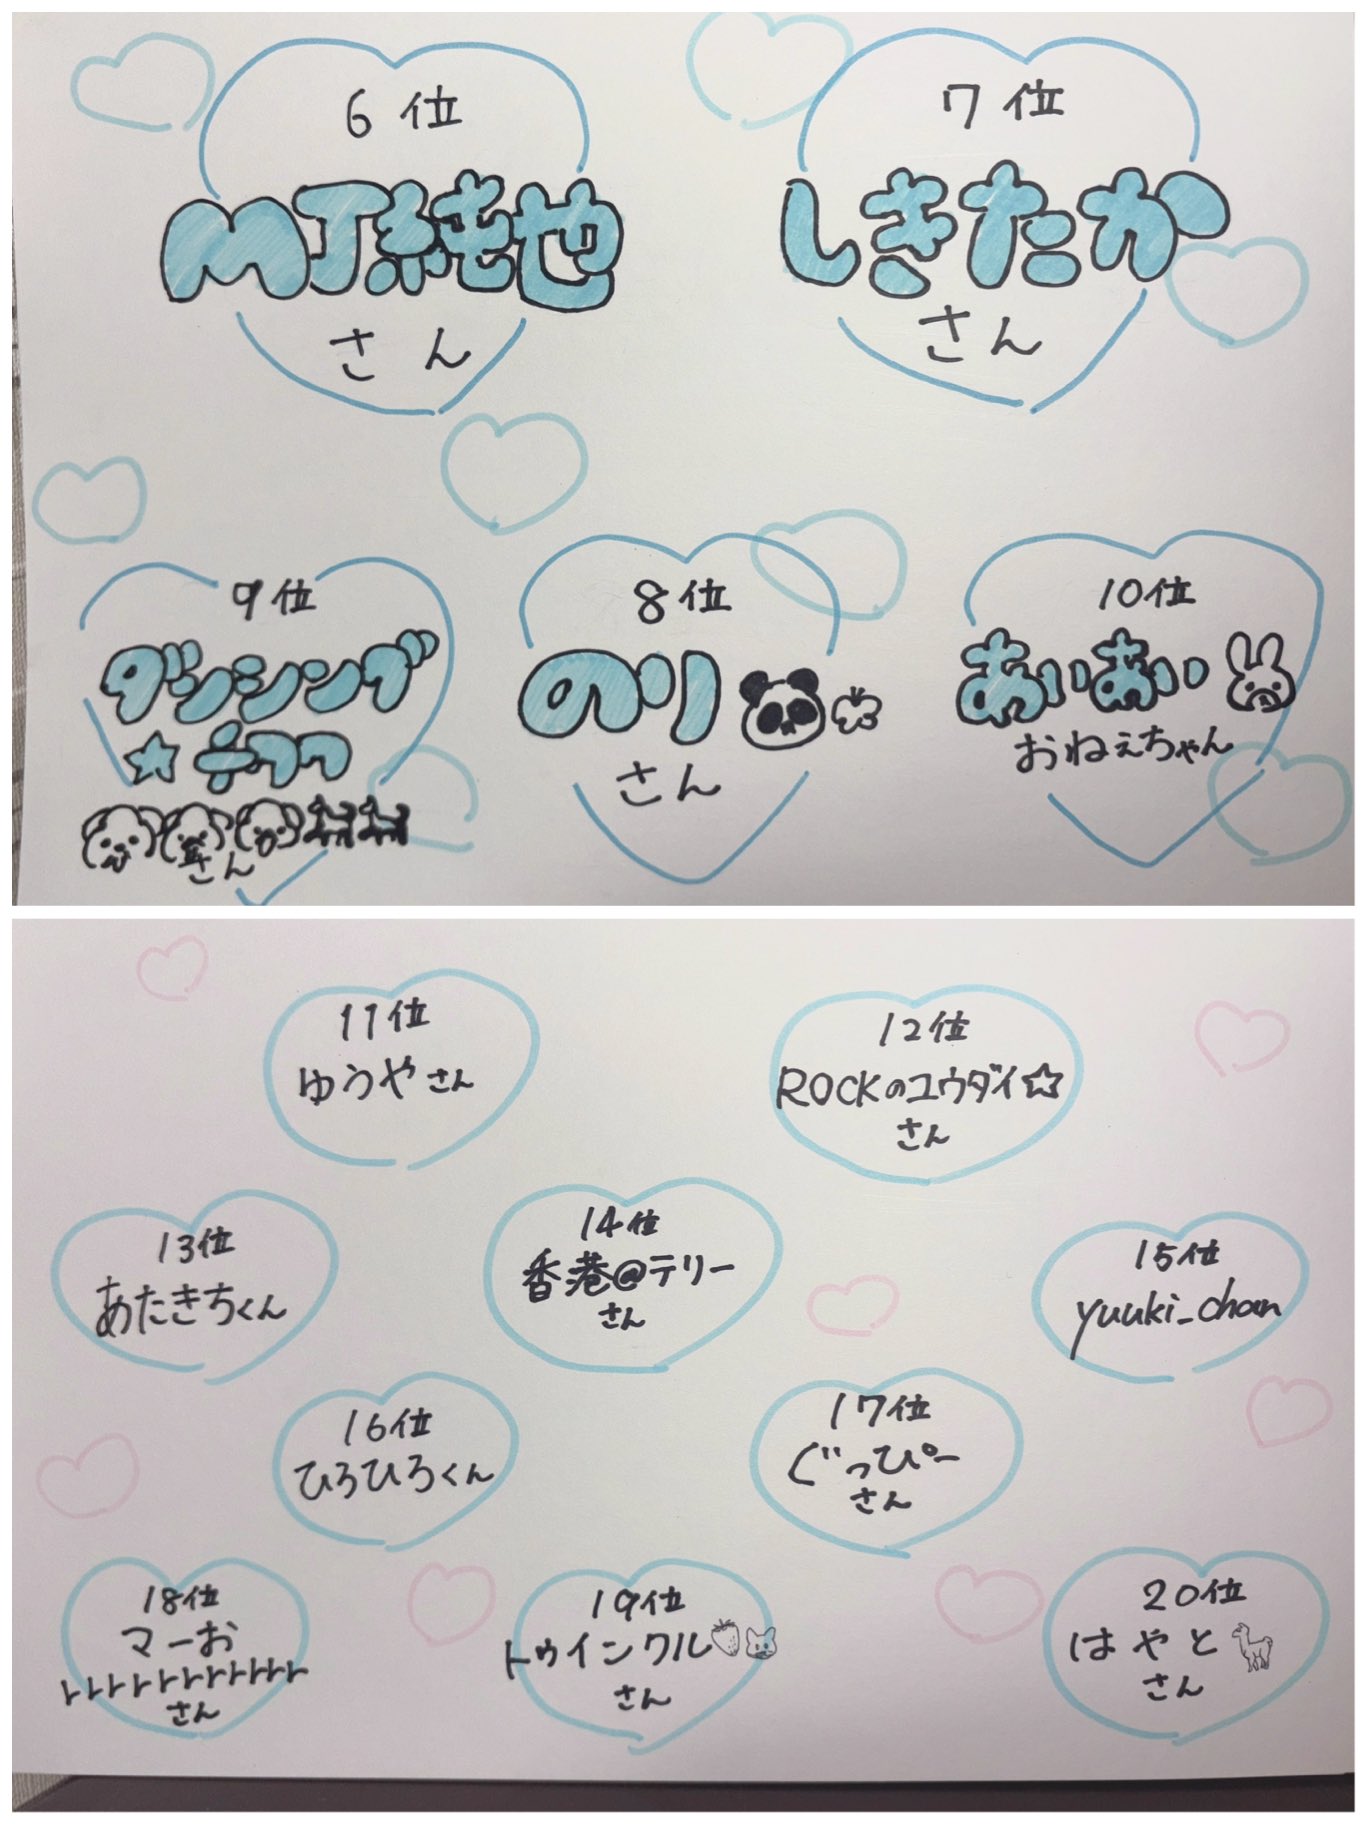 6位
MJ純也
さん
7位
しきたか
さん
9位
ダンシング
☆チワワ
さん
8位
のり
さん
10位
あぃあぃ
おねぇちゃん
11位
ゆうやさん
12位
ROCKのユウダイ☆
さん
13位
あたきちくん
14位
香港@テリー
さん
15位
yuuki_chan
16位
ひろひろくん
17位
ぐっぴー
さん
18位
マーお
さん
19位
トゥインクル
さん
20位
はやと
さん